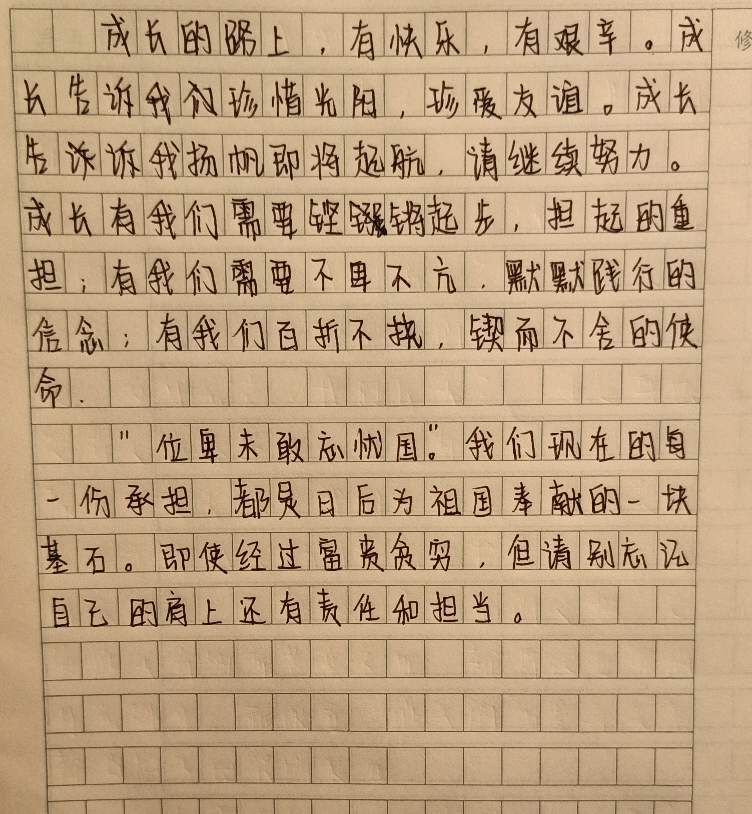 成长的路上，有快乐，有艰辛。成
长告诉我们珍惜光阳，珍爱友谊。成长
告诉诉我扬帆即将起航，请继续努力。
成长有我们需要铿锵起步，担起的重
担；有我们需要不卑不亢，默默践行的
信念；有我们百折不挠，锲而不舍的使
命.
"位卑未敢忘忧国"。我们现在的每
一份承担，都是日后为祖国奉献的一块
基石。即使经过富贵贫穷，但请别忘记
自己的肩上还有责任和担当。
修